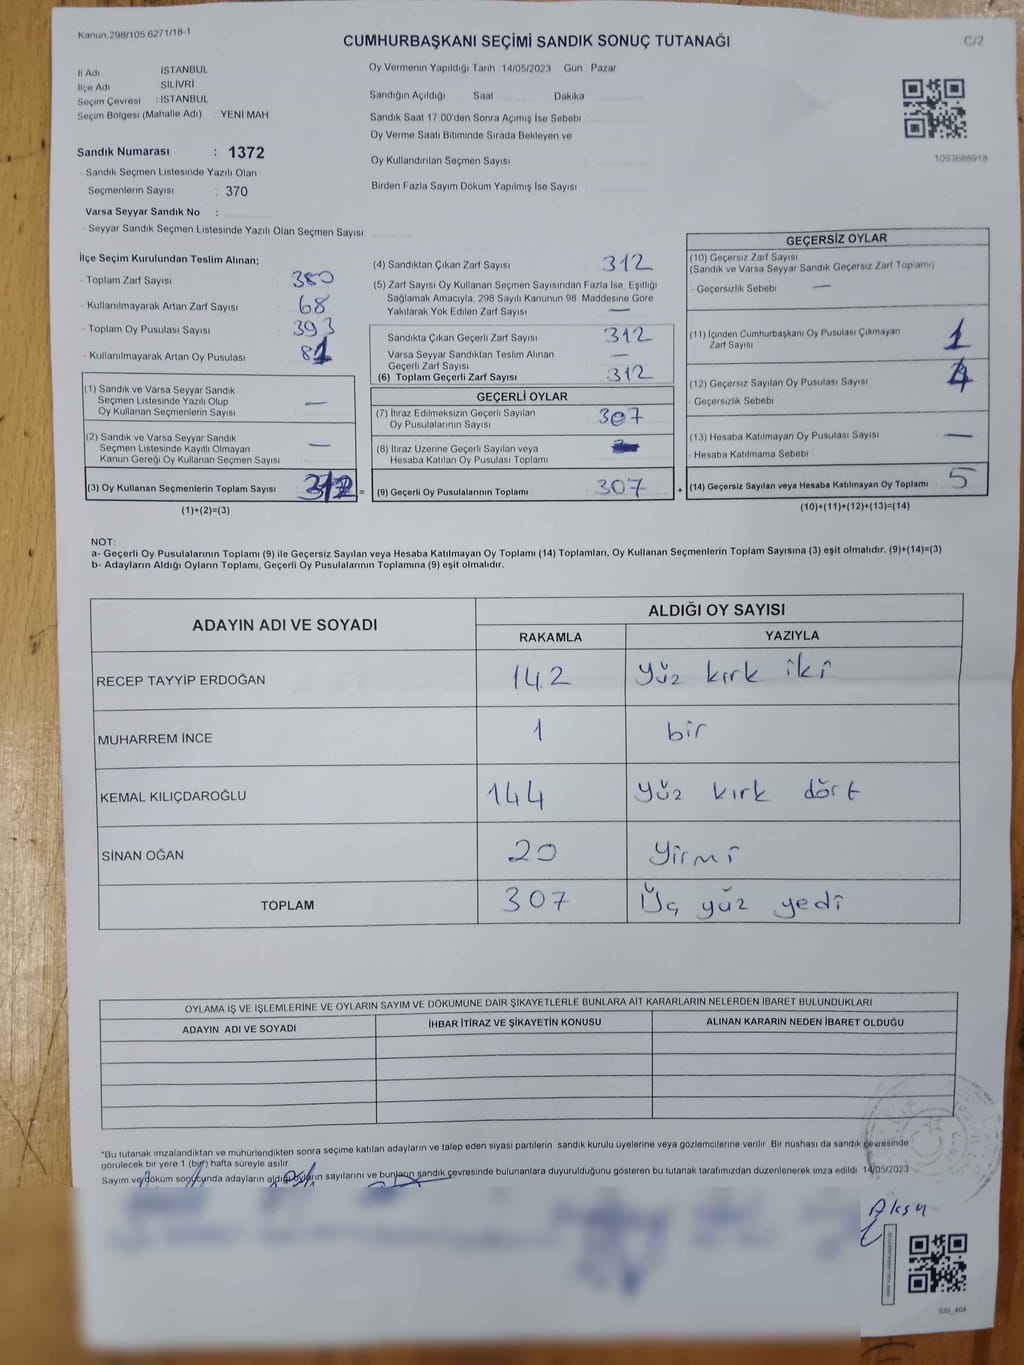 Kanun.298/105.6271/18-1
C/2
CUMHURBAŞKANI SEÇİMİ SANDIK SONUÇ TUTANAĞI
İl Adı İSTANBUL
İlçe Adı SİLİVRİ
Seçim Çevresi : İSTANBUL
Seçim Bölgesi (Mahalle Adı) : YENİ MAH
Sandık Numarası : 1372
- Sandık Seçmen Listesinde Yazılı Olan
Seçmenlerin Sayısı : 370
Varsa Seyyar Sandık No :
- Seyyar Sandık Seçmen Listesinde Yazılı Olan Seçmen Sayısı:
Oy Vermenin Yapıldığı Tarih : 14/05/2023 Gün : Pazar
Sandığın Açıldığı Saat Dakika
Sandık Saat 17:00'den Sonra Açımış İse Sebebi
Oy Verme Saati Bitiminde Sırada Bekleyen ve
Oy Kullandırılan Seçmen Sayısı
Birden Fazla Sayım Döküm Yapılmış İse Sayısı
1093688918
İlçe Seçim Kurulundan Teslim Alınan;
- Toplam Zarf Sayısı 380
- Kullanılmayarak Artan Zarf Sayısı 68
- Toplam Oy Pusulası Sayısı 393
- Kullanılmayarak Artan Oy Pusulası 81
(1) Sandık ve Varsa Seyyar Sandık
Seçmen Listesinde Yazılı Olup
Oy Kullanan Seçmenlerin Sayısı —
(2) Sandık ve Varsa Seyyar Sandık
Seçmen Listesinde Kayıtlı Olmayan
Kanun Gereği Oy Kullanan Seçmen Sayısı —
(3) Oy Kullanan Seçmenlerin Toplam Sayısı 312 =
(1)+(2)=(3)
(4) Sandıktan Çıkan Zarf Sayısı 312
(5) Zarf Sayısı Oy Kullanan Seçmen Sayısından Fazla İse, Eşitliği
Sağlamak Amacıyla, 298 Sayılı Kanunun 98. Maddesine Göre
Yakılarak Yok Edilen Zarf Sayısı —
Sandıkta Çıkan Geçerli Zarf Sayısı 312
Varsa Seyyar Sandıktan Teslim Alınan
Geçerli Zarf Sayısı —
(6) Toplam Geçerli Zarf Sayısı 312
GEÇERLİ OYLAR
(7) İtiraz Edilmeksizin Geçerli Sayılan
Oy Pusulalarının Sayısı 307
(8) İtiraz Üzerine Geçerli Sayılan veya
Hesaba Katılan Oy Pusulası Toplamı
(9) Geçerli Oy Pusulalarının Toplamı 307 +
GEÇERSİZ OYLAR
(10) Geçersiz Zarf Sayısı
(Sandık ve Varsa Seyyar Sandık Geçersiz Zarf Toplamı)
- Geçersizlik Sebebi —
(11) İçinden Cumhurbaşkanı Oy Pusulası Çıkmayan
Zarf Sayısı 1
(12) Geçersiz Sayılan Oy Pusulası Sayısı 4
- Geçersizlik Sebebi
(13) Hesaba Katılmayan Oy Pusulası Sayısı —
- Hesaba Katılmama Sebebi
(14) Geçersiz Sayılan veya Hesaba Katılmayan Oy Toplamı 5
(10)+(11)+(12)+(13)=(14)
NOT:
a- Geçerli Oy Pusulalarının Toplamı (9) ile Geçersiz Sayılan veya Hesaba Katılmayan Oy Toplamı (14) Toplamları, Oy Kullanan Seçmenlerin Toplam Sayısına (3) eşit olmalıdır. (9)+(14)=(3)
b- Adayların Aldığı Oyların Toplamı, Geçerli Oy Pusulalarının Toplamına (9) eşit olmalıdır.
ADAYIN ADI VE SOYADI ALDIĞI OY SAYISI
RAKAMLA YAZIYLA
RECEP TAYYİP ERDOĞAN 142 yüz kırk iki
MUHARREM İNCE 1 bir
KEMAL KILIÇDAROĞLU 144 yüz kırk dört
SİNAN OĞAN 20 yirmi
TOPLAM 307 Üç yüz yedi
OYLAMA İŞ VE İŞLEMLERİNE VE OYLARIN SAYIM VE DÖKÜMÜNE DAİR ŞİKAYETLERLE BUNLARA AİT KARARLARIN NELERDEN İBARET BULUNDUKLARI
ADAYIN ADI VE SOYADI İHBAR İTİRAZ VE ŞİKAYETİN KONUSU ALINAN KARARIN NEDEN İBARET OLDUĞU
*Bu tutanak imzalandıktan ve mühürlendikten sonra seçime katılan adayların ve talep eden siyasi partilerin sandık kurulu üyelerine ve/veya gözlemcilerine verilir. Bir nüshası da sandık çevresinde
görülecek bir yere 1 (bir) hafta süreyle asılır.
Sayım ve döküm sonucunda adayların aldığı oyların sayılarını ve bunların sandık çevresinde bulunanlara duyurulduğunu gösteren bu tutanak tarafımızdan düzenlenerek imza edildi. 14/05/2023
Aksu